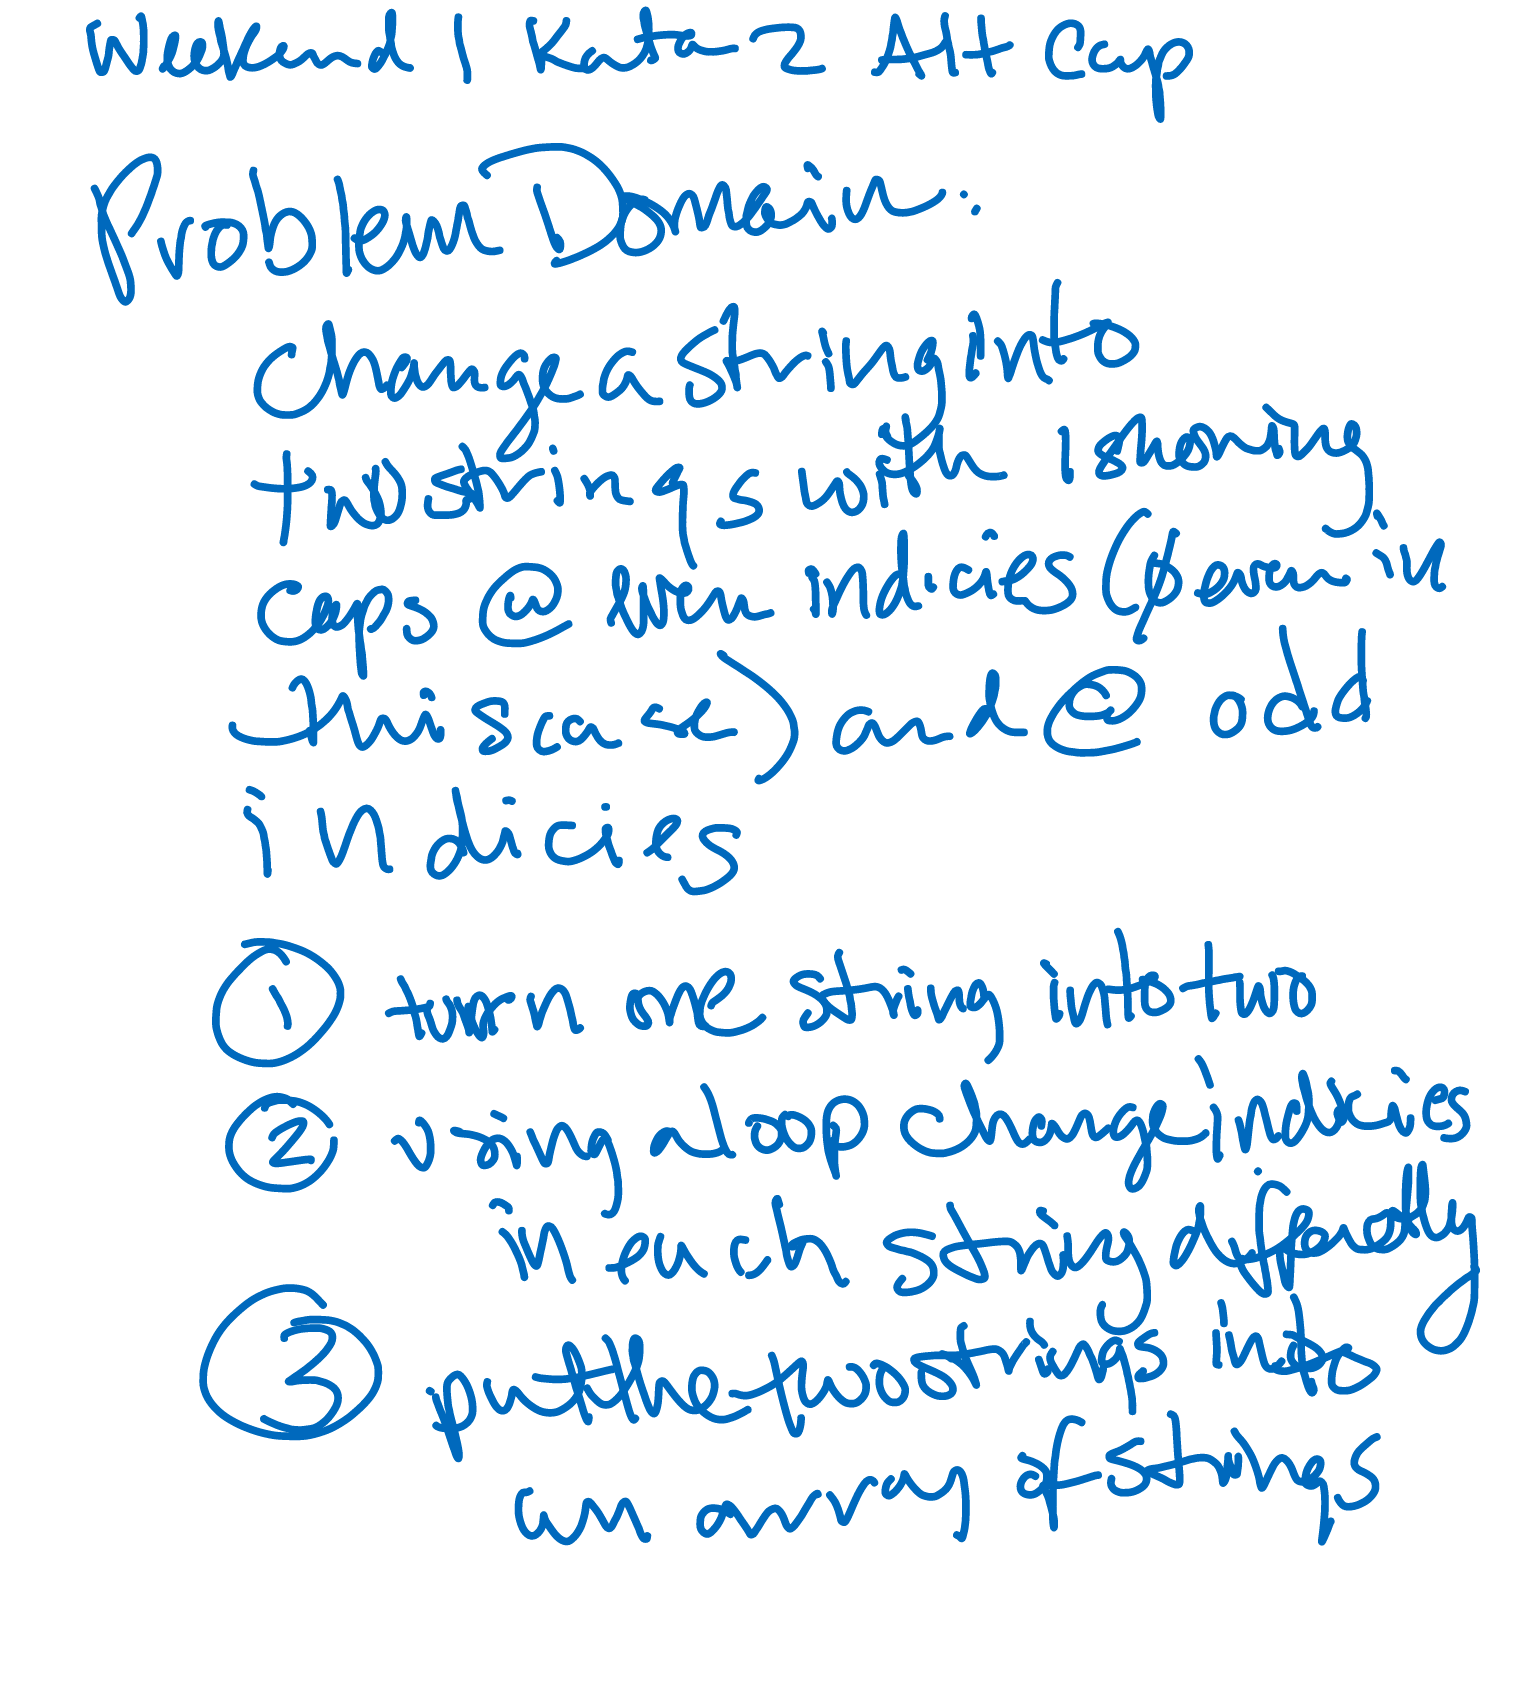 Weekend 1 Kata 2 Alt Cap
Problem Domain:
change a string into
two strings with 1 showing
caps @ even indicies (0 even in
this case) and @ odd
indicies
① turn one string into two
② using a loop change indicies
in each string differently
③ put the two strings into
an array of strings